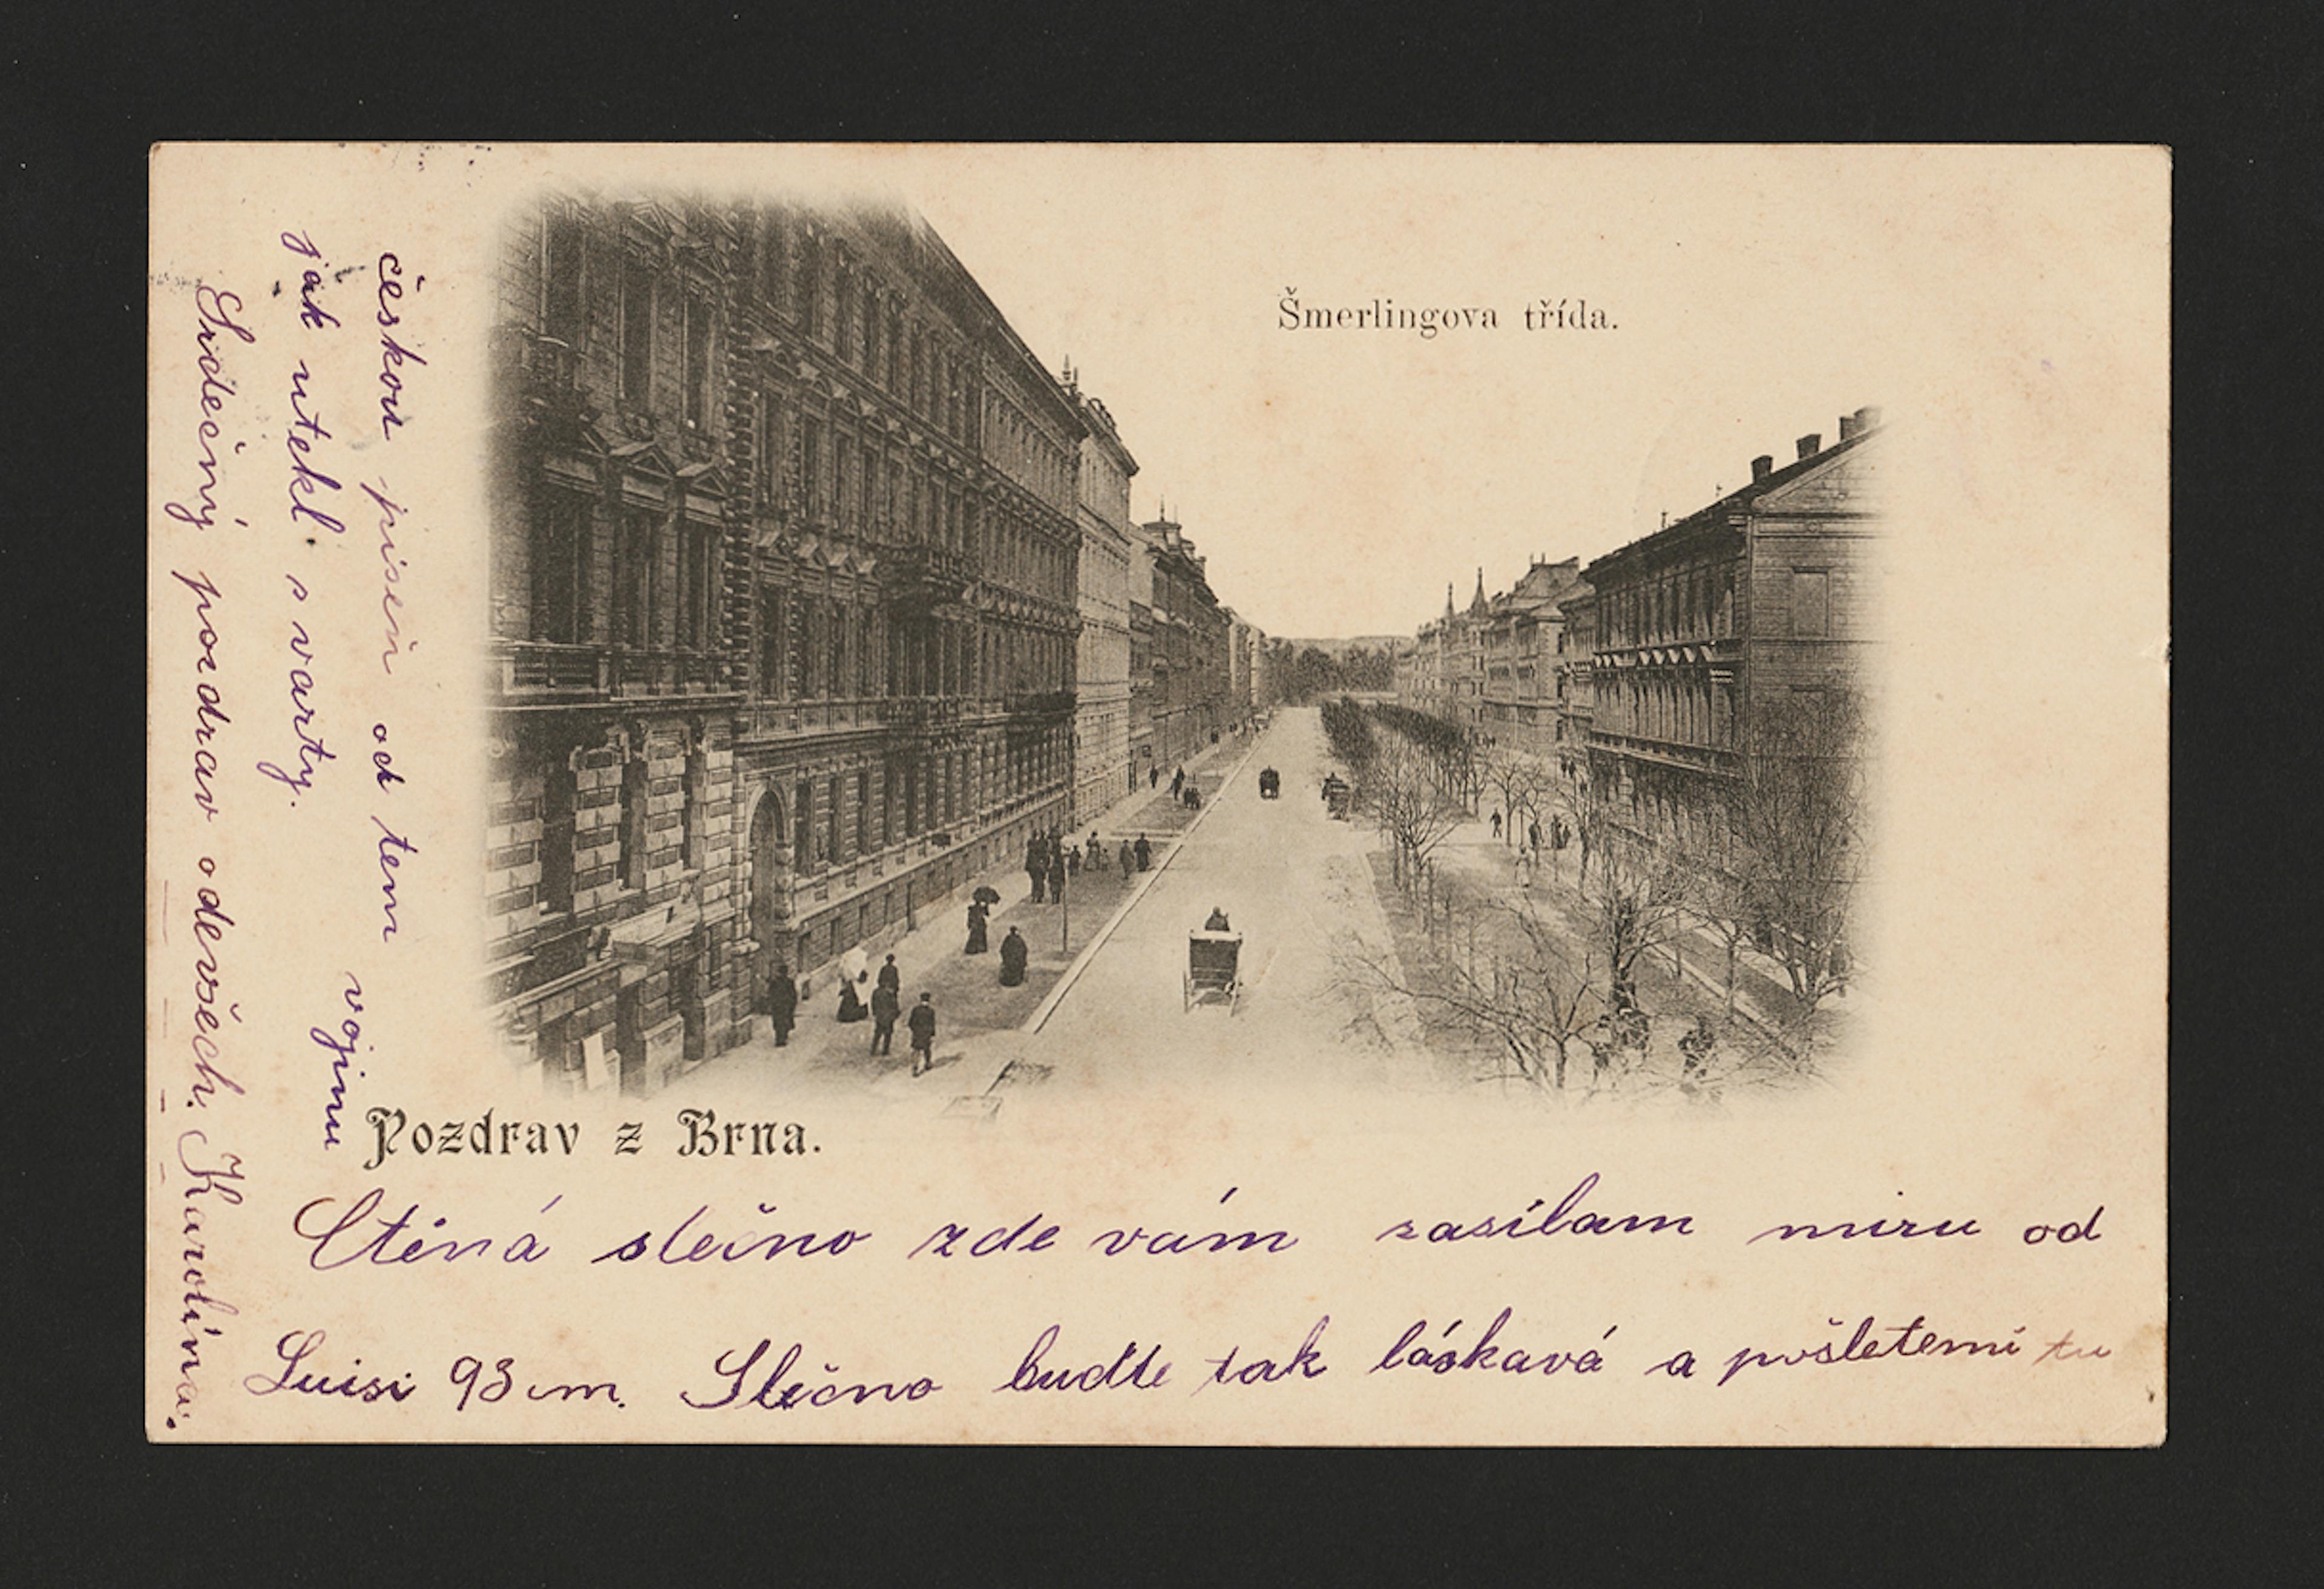 Šmerlingova třída.
Pozdrav z Brna.
Ctěná slečno zde vám zasílam miru od
Luisi 93 cm. Slečno buďte tak láskavá a pošletemi tu
českou písen od tem vojinu
jak utekl s varty.
Srdečný pozdrav odevšech. Karolína.